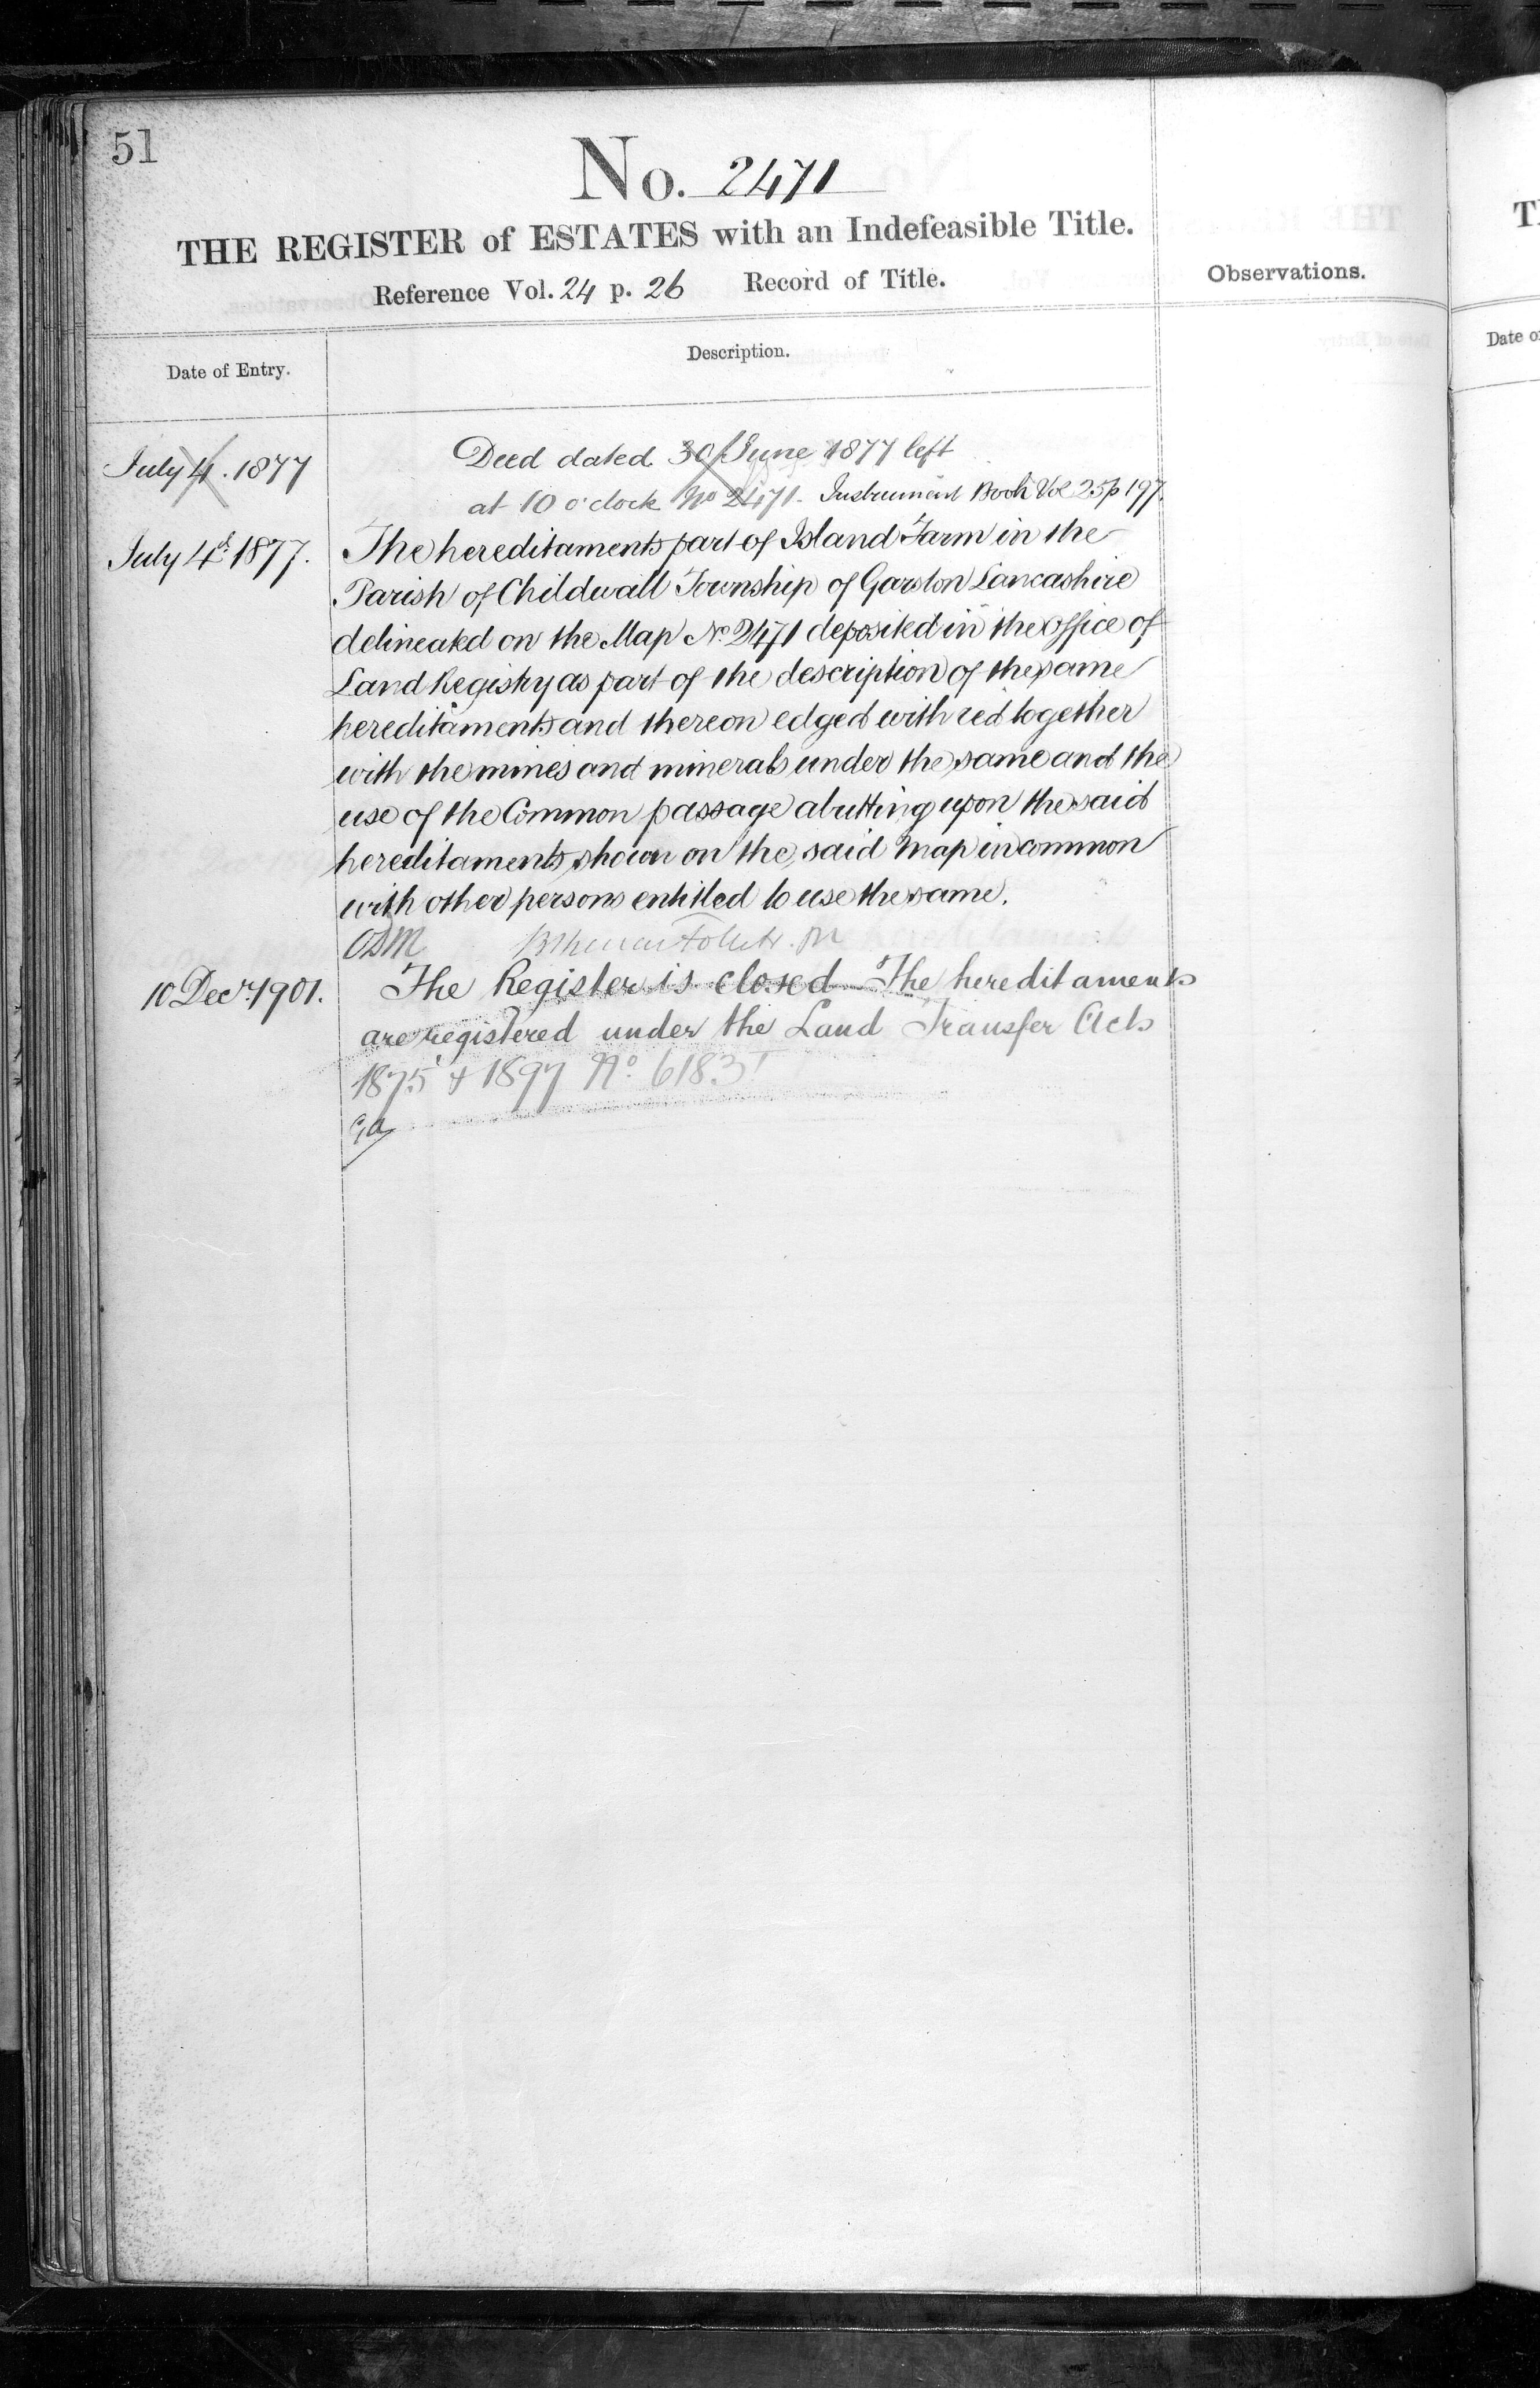 51
No. 2471
THE REGISTER of ESTATES with an Indefeasible Title.
Reference Vol. 24 p. 26 Record of Title.
Observations.
Date of Entry.
Description.
July 4. 1877
Deed dated 30 June 1877 left
at 10 o'clock No 2471. Instrument Book Vol 25 p 197.
July 4th 1877.
The hereditaments part of Island Farm in the
Parish of Childwall Township of Garston Lancashire
delineated on the Map No. 2471 deposited in the Office of
Land Registry as part of the description of the same
hereditaments and thereon edged with red together
with the mines and minerals under the same and the
use of the Common passage abutting upon the said
hereditaments shown on the said Map in common
with other persons entitled to use the same.
10 Decr. 1901.
The Register is closed The hereditaments
are registered under the Land Transfer Acts
1875 & 1897 No. 6183
T
Date o